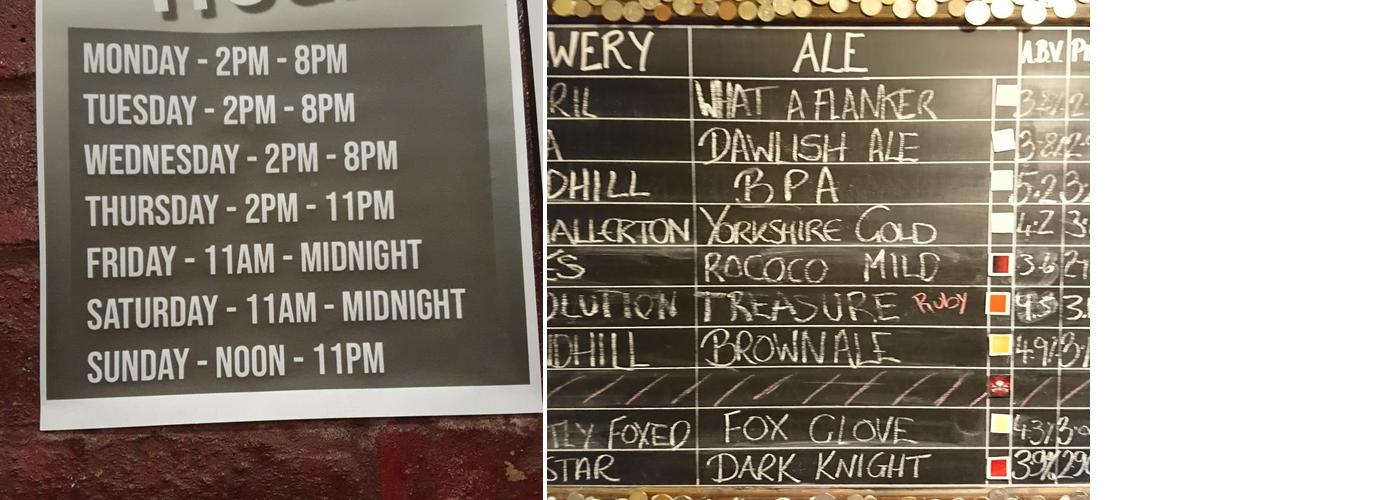 MONDAY - 2PM - 8PM
TUESDAY - 2PM - 8PM
WEDNESDAY - 2PM - 8PM
THURSDAY - 2PM - 11PM
FRIDAY - 11AM - MIDNIGHT
SATURDAY - 11AM - MIDNIGHT
SUNDAY - NOON - 11PM
WERY ALE A.B.V.
RIL WHAT A FLANKER
A DAWLISH ALE
DHILL BPA 5.2
ALLERTON YORKSHIRE GOLD 4.2
ES ROCOCO MILD 3.6
OLUTION TREASURE Ruby
DHILL BROWN ALE 4.9%
TLY FOXED FOX GLOVE 4.3%
STAR DARK KNIGHT 3.9%